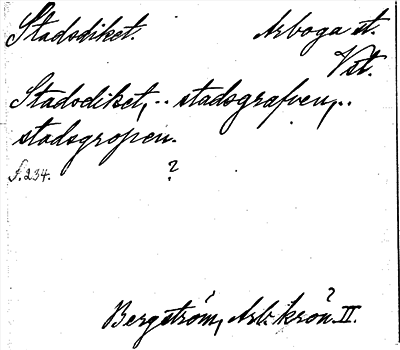 Stadsdiket. Arboga st.
Vst.
Stadsdiket, .. stadsgrafven, ..
stadsgropen.
s. 234. ?
Bergström, Arb. krön. II.